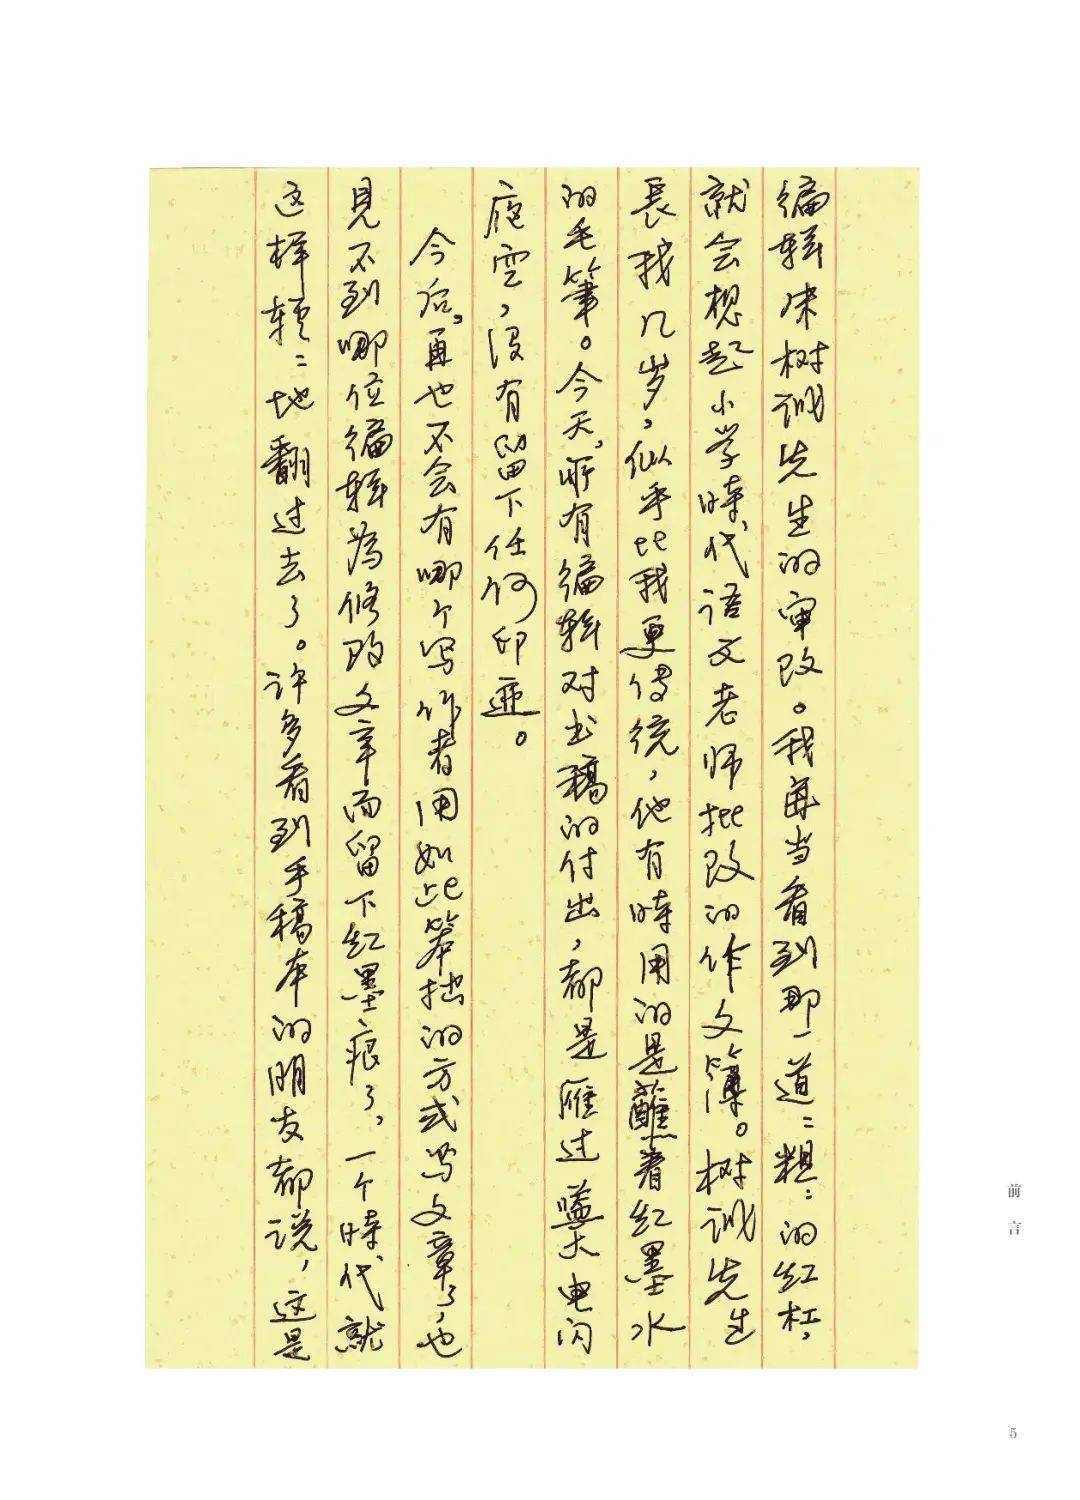 编辑树训先生的审改。我每当看到那一道:粗:的红杠,
就会想起小学時代语文老师批改的作文簿。树训先生
長我几岁,似乎比我更传统,他有時用的是蘸着红墨水
的毛筆。今天,所有编辑对书稿的付出,都是雁过蓝天电闪
夜空,没有留下任何印迹。
今后,再也不会有哪个写作者用如此笨拙的方式写文章了,也
見不到哪位编辑為修改文章而留下红墨痕了,一个時代就
这样轻:地翻过去了。许多看到手稿本的朋友都说,这是
前言
5